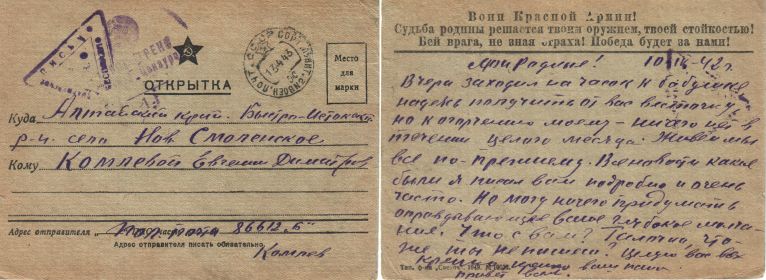 ОТКРЫТКА
Место
для
марки
Куда Алтайский край. Быстро-Истокский
р-н село Нов. Смоленское
Кому Комлевой Евгении Димитров
Адрес отправителя почта 86612 „Б“
Адрес отправителя писать обязательно.
Комлев
Воин Красной Армии!
Судьба родины решается твоим оружием, твоей стойкостью!
Бей врага, не зная страха! Победа будет за нами!
Мои Родные! 10 42 г.
Вчера заходил на часок к бабушке
надеясь получить от вас весточку,
но к огорчению моему - ничего нет в
течении целого месяца. Живем мы
все по-прежнему. Все новости какие
были я писал вам подробно и очень
часто. Не могу ничего придумать
оправдывающее ваше глубокое молча-
ние. Что с вами? Талочка, что
же, ты не пишешь? Целую вас всех
крепко
привет всем